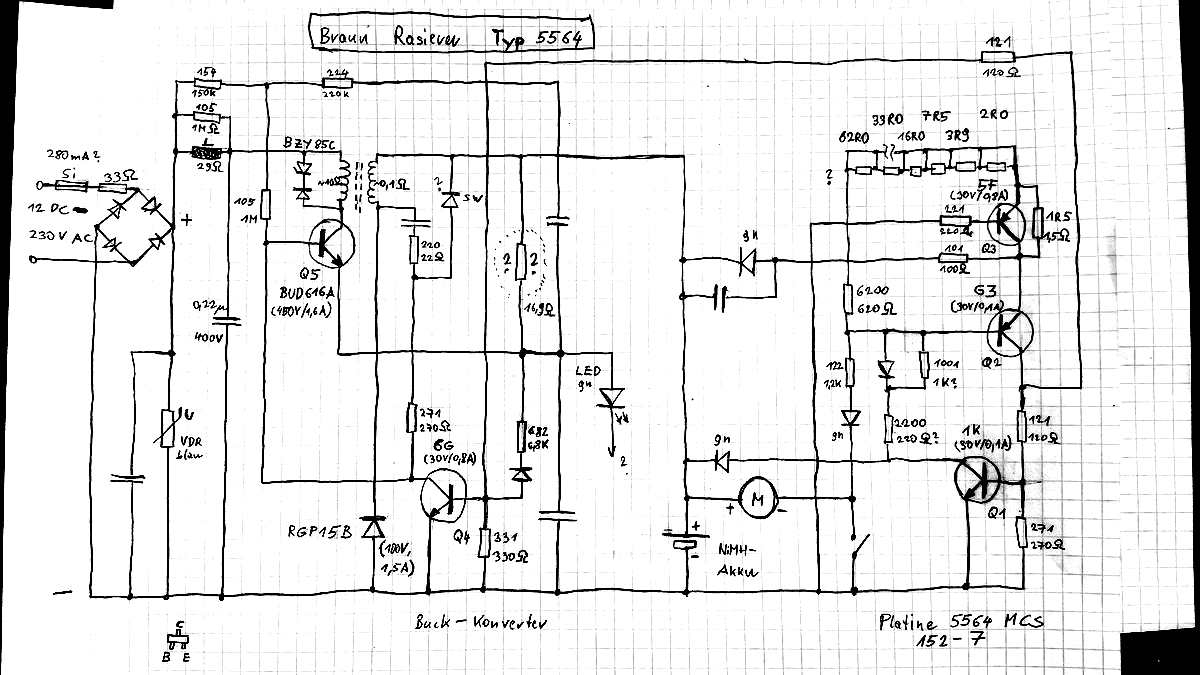 Braun Rasierer Typ 5564
121
120Ω
154
150K
224
220K
105
1MΩ
29Ω
BZY85C
280mA?
Si
33Ω
12 DC
230V AC
+
105
1M
~0,1Ω
?
SW
220
22Ω
Q5
BUD616A
(400V/1,6A)
0,22µ
400V
? ?
16,9Ω
gn
33R0
7R5
2R0
62R0
16R0
3R9
?
5F
(30V/0,8A)
221
220Ω
Q3
1R5
1,5Ω
101
100Ω
6200
620Ω
G3
(30V/0,1A)
Q2
122
1,2K
1001
1K?
gn
2200
220Ω?
121
120Ω
1K
(30V/0,1A)
Q1
271
270Ω
LED
gn
?
VDR
blau
271
270Ω
6G
(30V/0,8A)
Q4
682
6,8K
331
330Ω
RGP15B
(100V,
1,5A)
gn
M
+ -
+
-
NiMH-
Akku
-
Buck-Konverter
Platine 5564 MCS
152-7
C
B E